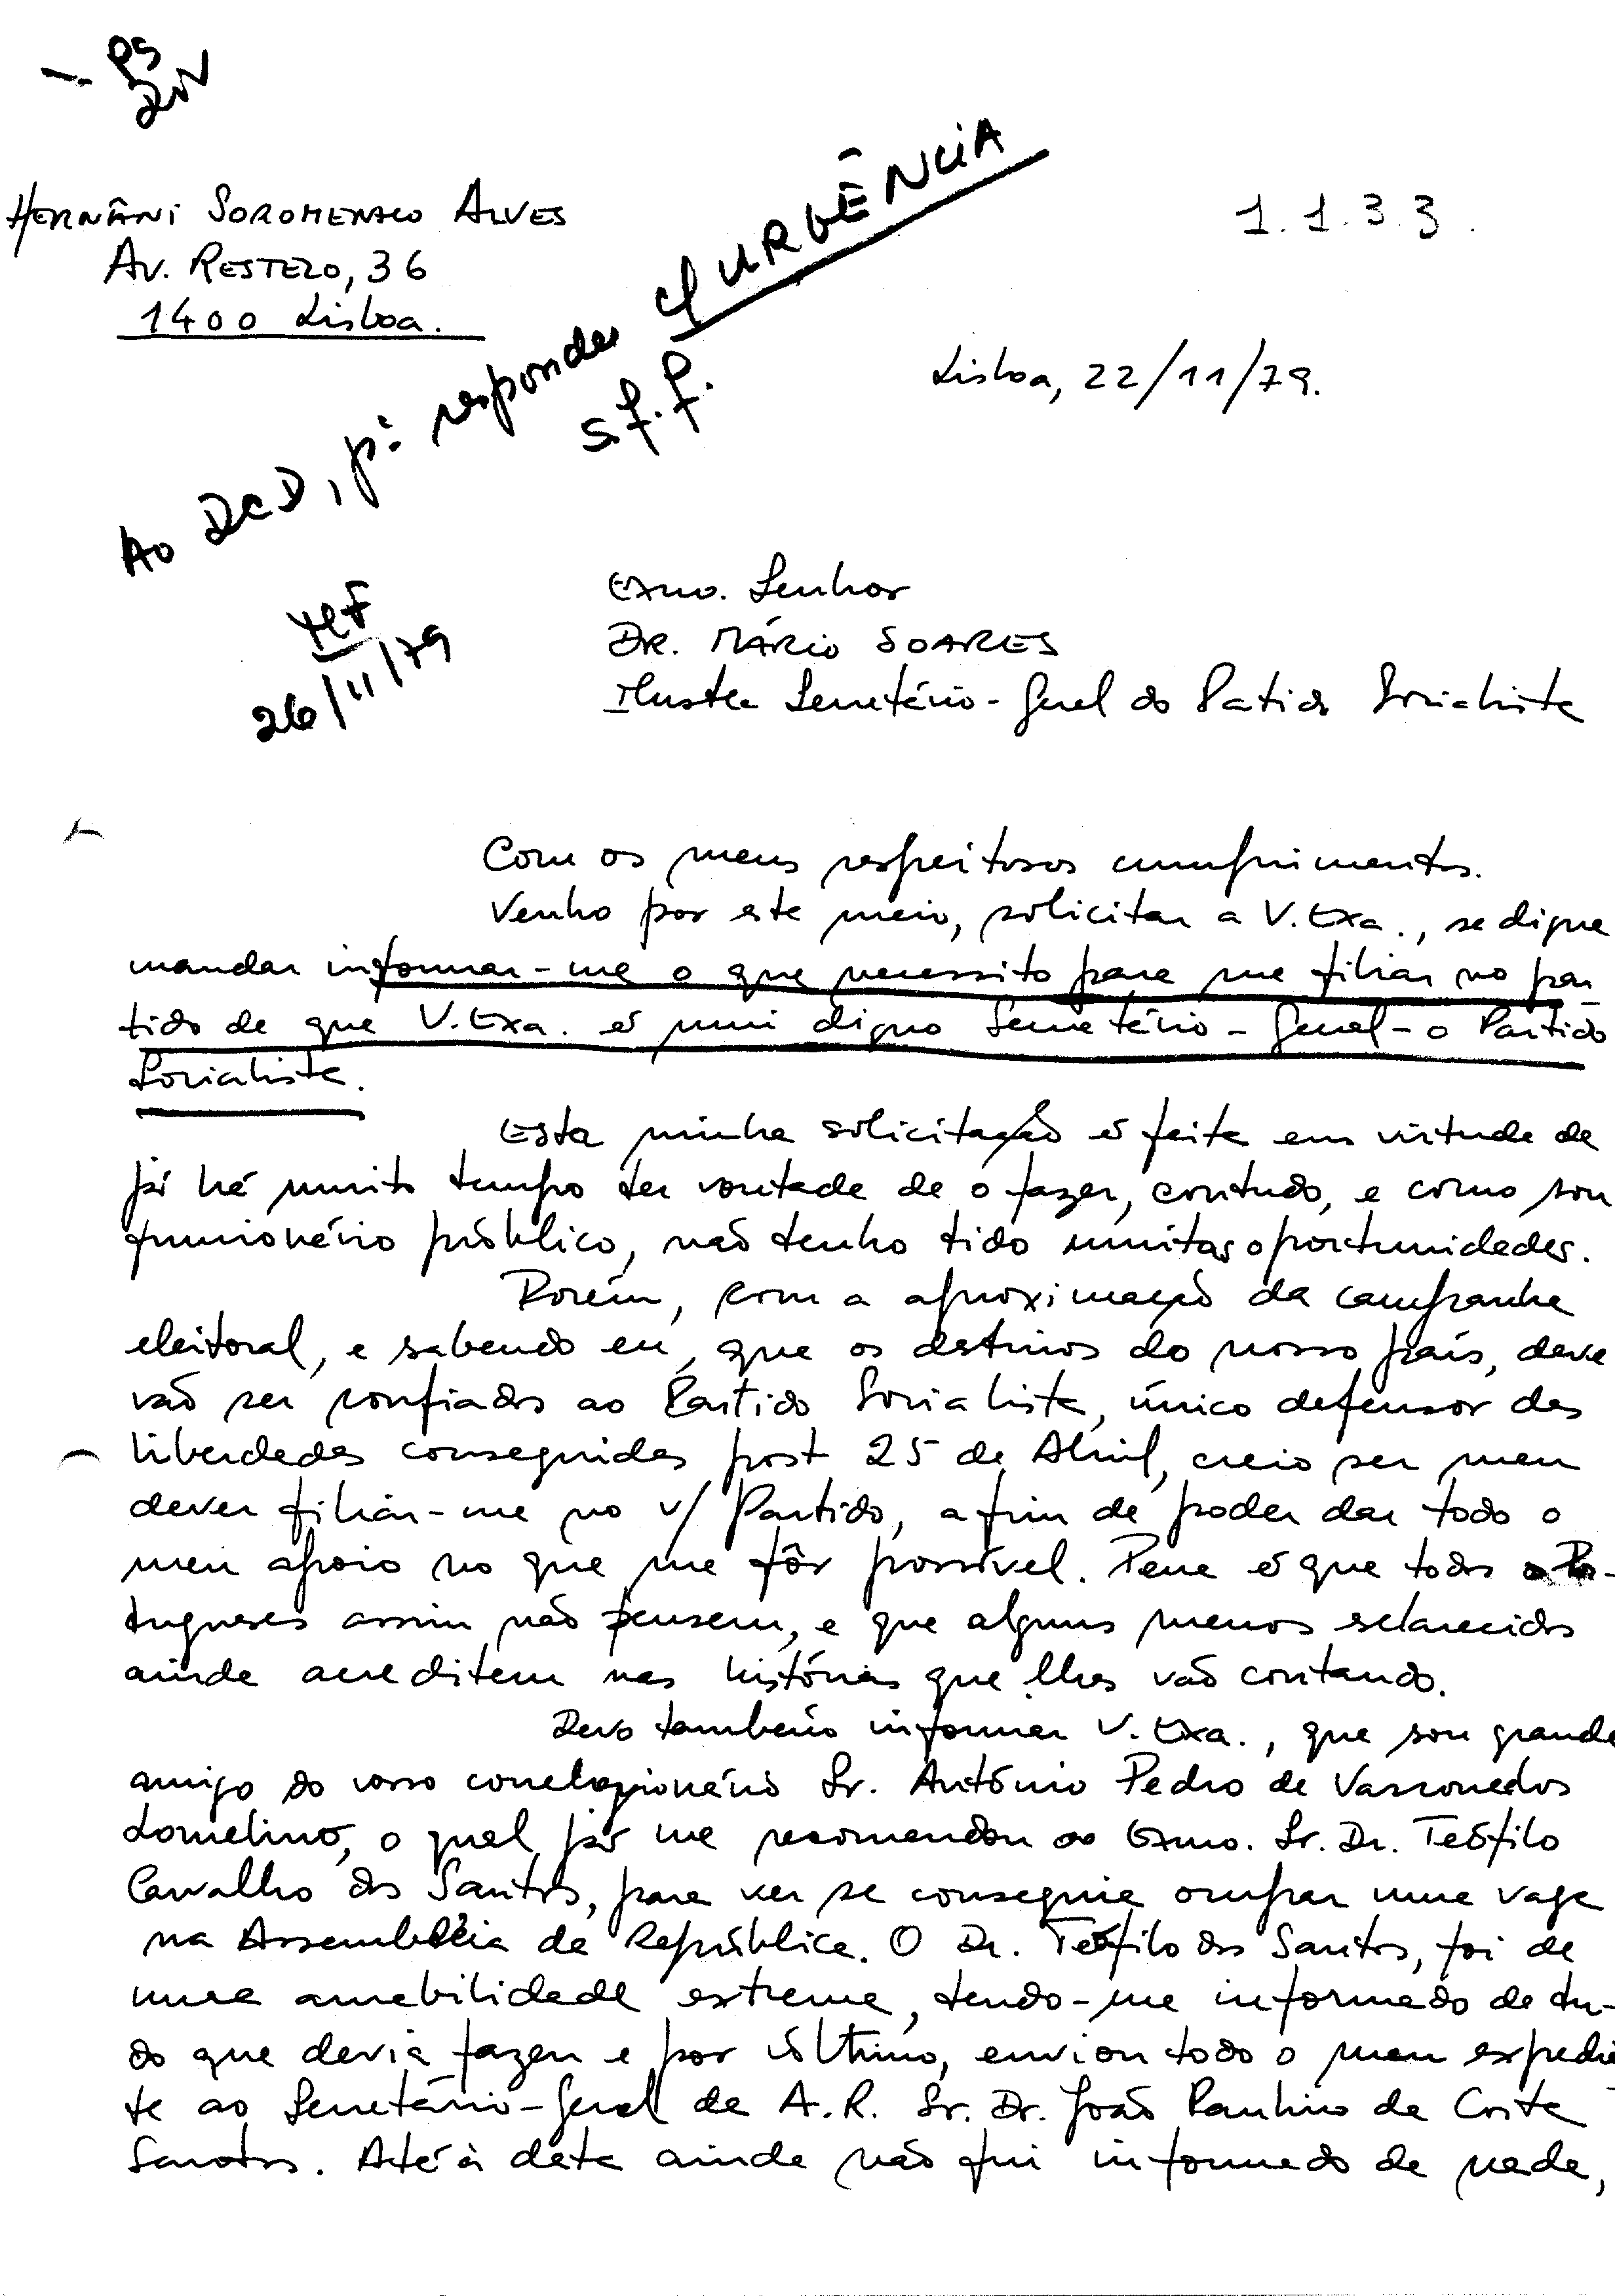 PS
HERNÂNI SOROMENHO ALVES
AV. RESTELO, 36
1400 Lisboa.
1.1.3 3.
Lisboa, 22/11/79.
Ao DCD, p.ª responder c/ URGÊNCIA
s.f.f.
26/11/79
Exmo. Senhor
DR. MÁRIO SOARES
Ilustre Secretário-Geral do Partido Socialista
Com os meus respeitosos cumprimentos.
Venho por este meio, solicitar a V. Exa., se digne
mandar informar-me o que necessito para me filiar no par-
tido de que V. Exa. é mui digno Secretário-Geral - o Partido
Socialista.
Esta minha solicitação é feita em virtude de
já há muito tempo ter vontade de o fazer, contudo, e como sou
funcionário público, não tenho tido muitas oportunidades.
Porém, com a aproximação da campanha
eleitoral, e sabendo eu, que os destinos do nosso país, deve
vão ser confiados ao Partido Socialista, único defensor das
liberdades conseguidas post 25 de Abril, creio ser meu
dever filiar-me no v/ Partido, a fim de poder dar todo o
meu apoio no que me fôr possível. Pena é que todos os Por-
tugueses assim não pensem, e que alguns menos esclarecidos
ainda acreditem nas histórias que lhes vão contando.
Devo também informar V. Exa., que sou grande
amigo do vosso correlegionário Sr. António Pedro de Vasconcelos
Lomelino, o qual já me recomendou ao Exmo. Sr. Dr. Teófilo
Carvalho dos Santos, para ver se conseguia ocupar uma vaga
na Assembleia da República. O Dr. Teófilo dos Santos, foi de
uma amabilidade extrema, tendo-me informado de tu-
do que devia fazer e por último, enviou todo o meu expedien
te ao Secretário-Geral da A.R. Sr. Dr. João Paulino da Costa
Santos. Até à data ainda não fui informado de nada,